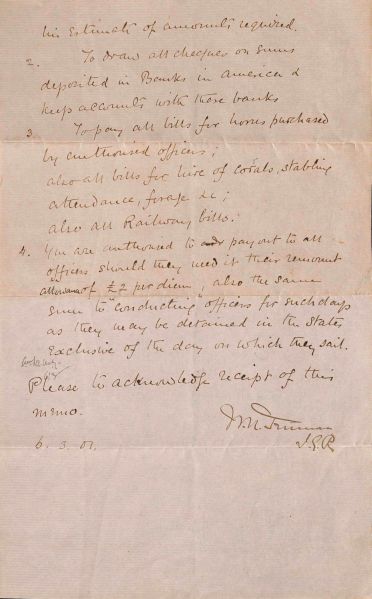 his Estimate of amounts required.
2. To draw all cheques on sums
deposited in Banks in America &
keep accounts with these banks
3. To pay all bills for horses purchased
by authorised officers;
also all bills for hire of corals, stabling
attendance, forage &c;
also all Railway bills.
4. You are authorised to pay out to all
officers should they need it their remount
allowance of £2 per diem, also the same
sum to "conducting" officers for such days
as they may be detained in the States
Exclusive of the day on which they sail.
Please to acknowledge receipt of this
memo.
W.R. Truman
I.G.R
6. 3. 01.